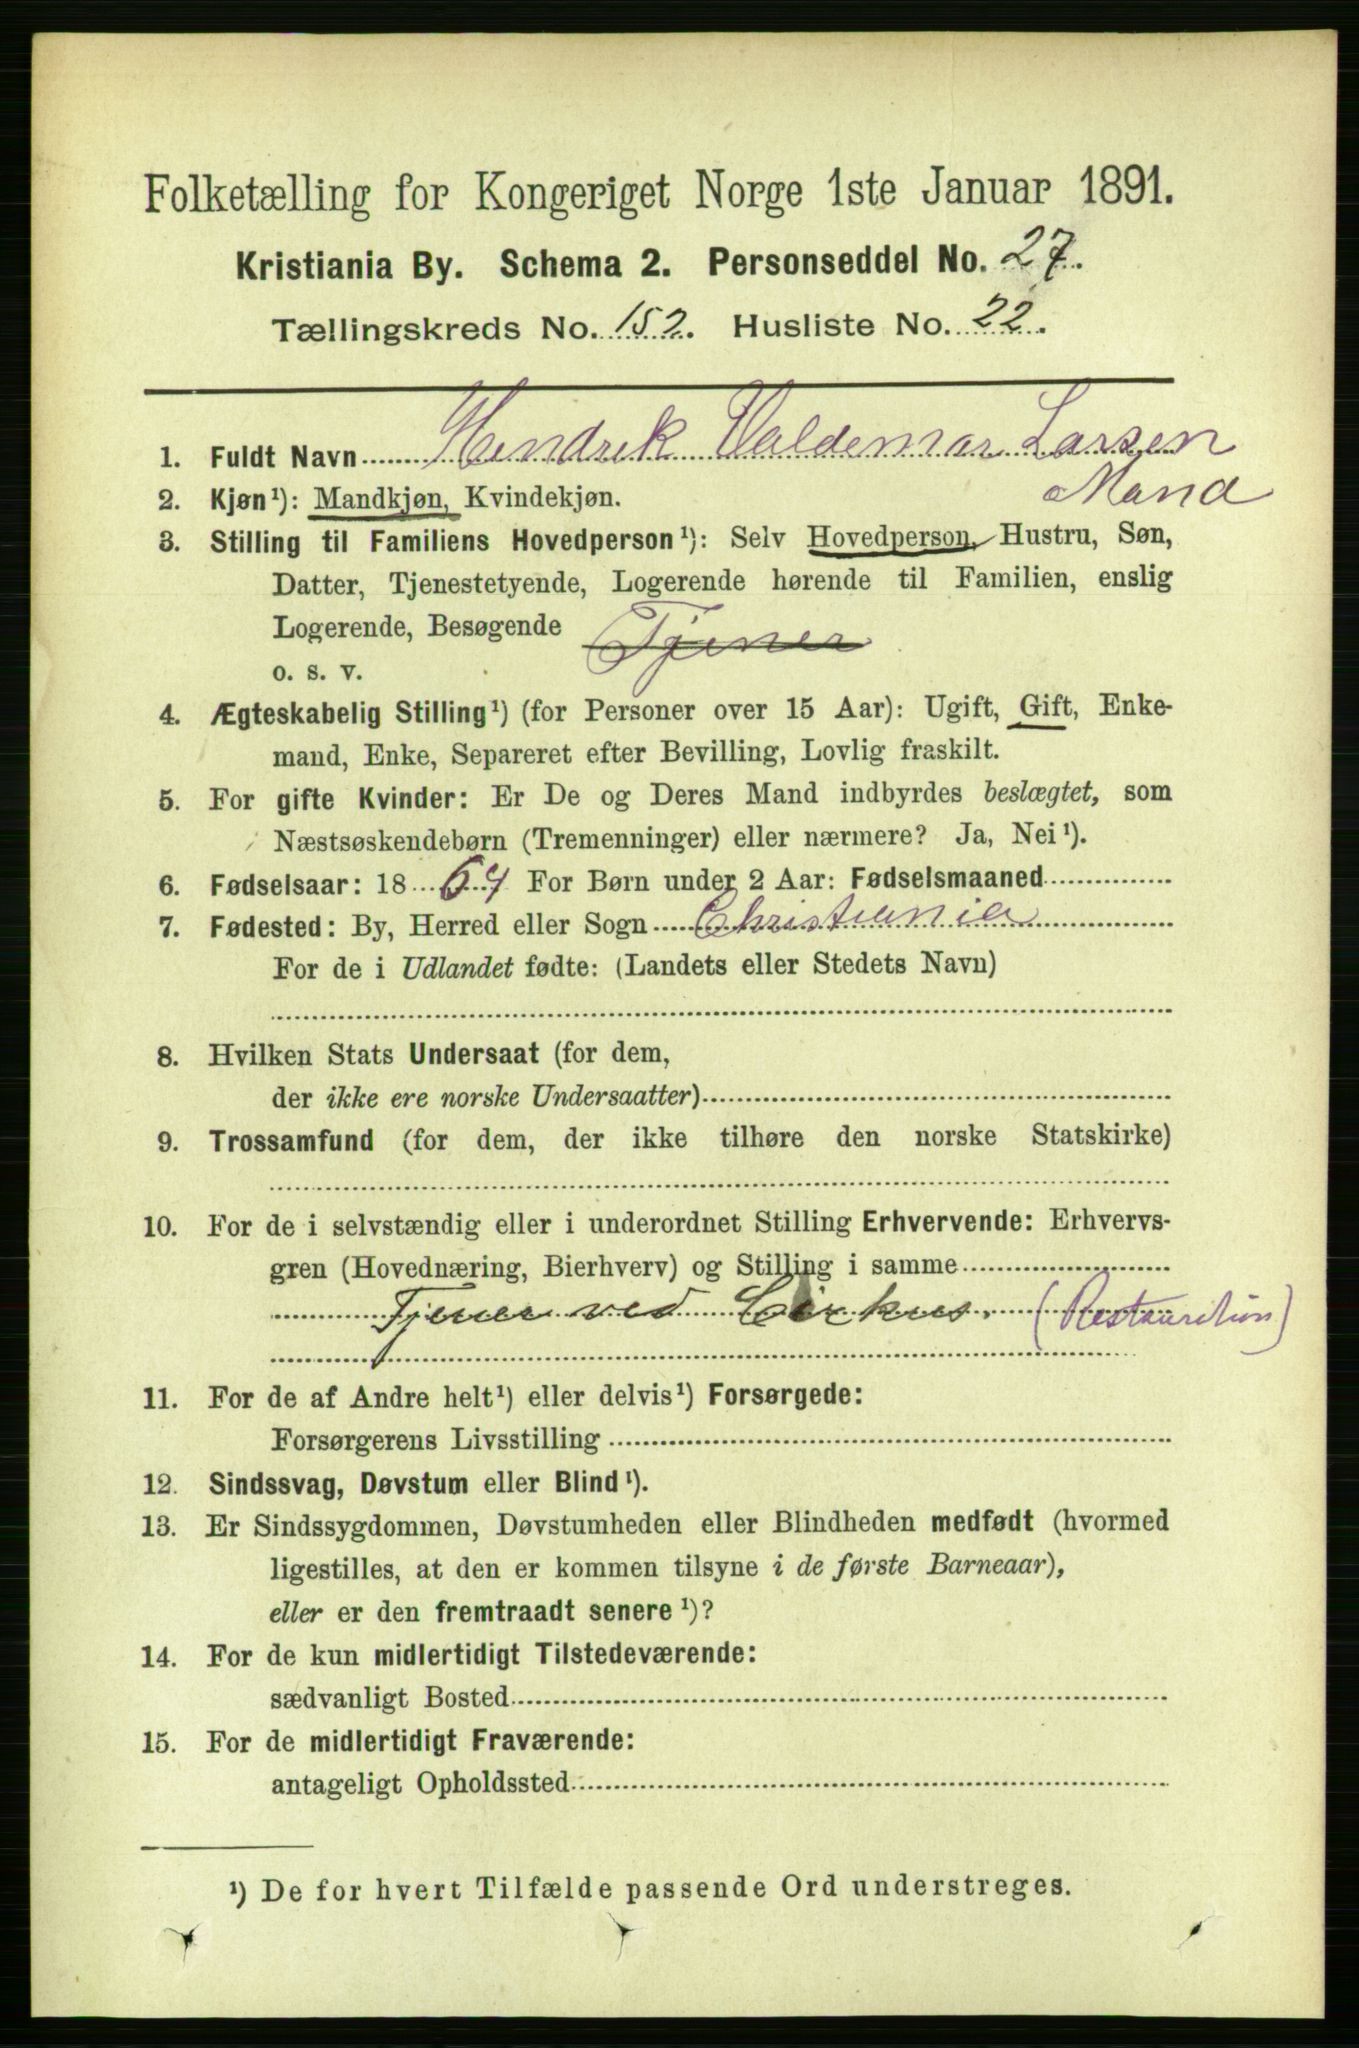 Folketælling for Kongeriget Norge 1ste Januar 1891.
Kristiania By. Schema 2. Personseddel No. 27.
Tællingskreds No. 152. Husliste No. 22.
1. Fuldt Navn Hendrek Valdemar Larsen
2. Kjøn¹): Mandkjøn, Kvindekjøn. Mand
3. Stilling til Familiens Hovedperson¹): Selv Hovedperson, Hustru, Søn,
Datter, Tjenestetyende, Logerende hørende til Familien, enslig
Logerende, Besøgende Tjener
o. s. v.
4. Ægteskabelig Stilling¹) (for Personer over 15 Aar): Ugift, Gift, Enke-
mand, Enke, Separeret efter Bevilling, Lovlig fraskilt.
5. For gifte Kvinder: Er De og Deres Mand indbyrdes beslægtet, som
Næstsøskendebørn (Tremenninger) eller nærmere? Ja, Nei¹).
6. Fødselsaar: 1864 For Børn under 2 Aar: Fødselsmaaned
7. Fødested: By, Herred eller Sogn Christiania
For de i Udlandet fødte: (Landets eller Stedets Navn)
8. Hvilken Stats Undersaat (for dem,
der ikke ere norske Undersaatter)
9. Trossamfund (for dem, der ikke tilhøre den norske Statskirke)
10. For de i selvstændig eller i underordnet Stilling Erhvervende: Erhvervs-
gren (Hovednæring, Bierhverv) og Stilling i samme
Tjener ved Cirkus. (Restauration)
11. For de af Andre helt¹) eller delvis¹) Forsørgede:
Forsørgerens Livsstilling
12. Sindssvag, Døvstum eller Blind¹).
13. Er Sindssygdommen, Døvstumheden eller Blindheden medfødt (hvormed
ligestilles, at den er kommen tilsyne i de første Barneaar),
eller er den fremtraadt senere¹)?
14. For de kun midlertidigt Tilstedeværende:
sædvanligt Bosted
15. For de midlertidigt Fraværende:
antageligt Opholdssted
¹) De for hvert Tilfælde passende Ord understreges.